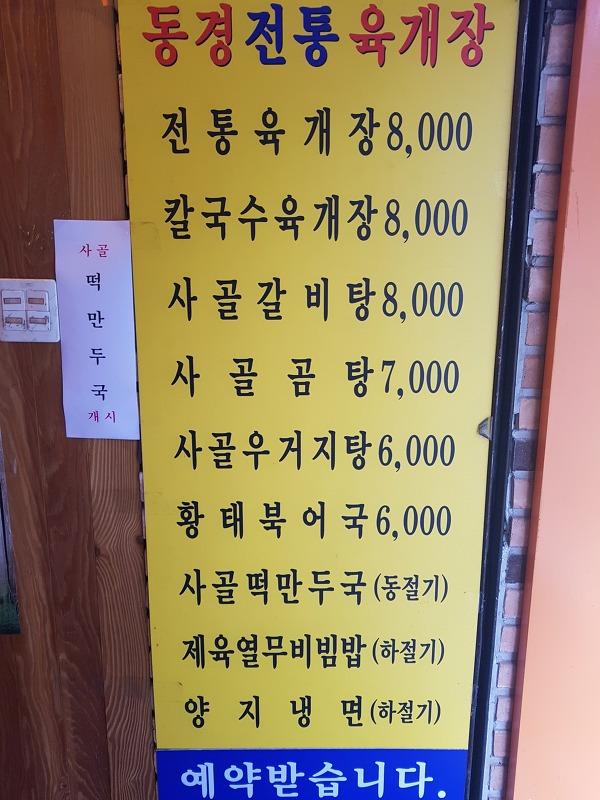 동경전통육개장
전통육개장 8,000
칼국수육개장 8,000
사골갈비탕 8,000
사골곰탕 7,000
사골우거지탕 6,000
황태북어국 6,000
사골떡만두국 (동절기)
제육열무비빔밥 (하절기)
양지냉면 (하절기)
예약받습니다.
사골
떡
만
두
국
개시